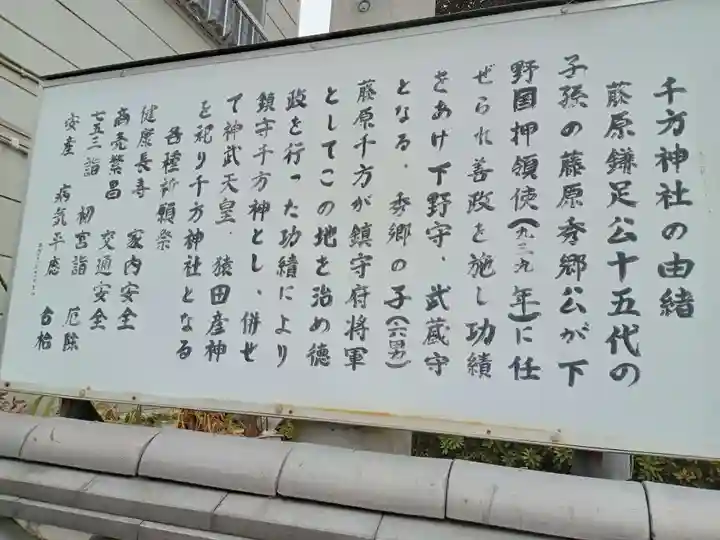 千方神社の由緒
藤原鎌足公十五代の
子孫の藤原秀郷公が下
野国押領使(九三九年)に任
ぜられ善政を施し功績
をあげ下野守、武蔵守
となる。秀郷の子(六男)
藤原千方が鎮守府将軍
としてこの地を治め徳
政を行った功績により
鎮守千方神とし、併せ
て神武天皇、猿田彦神
を祀り千方神社となる
各種祈願祭
健康長寿 家内安全
商売繁昌 交通安全
七五三詣 初宮詣 厄除
安産 病気平癒 合格